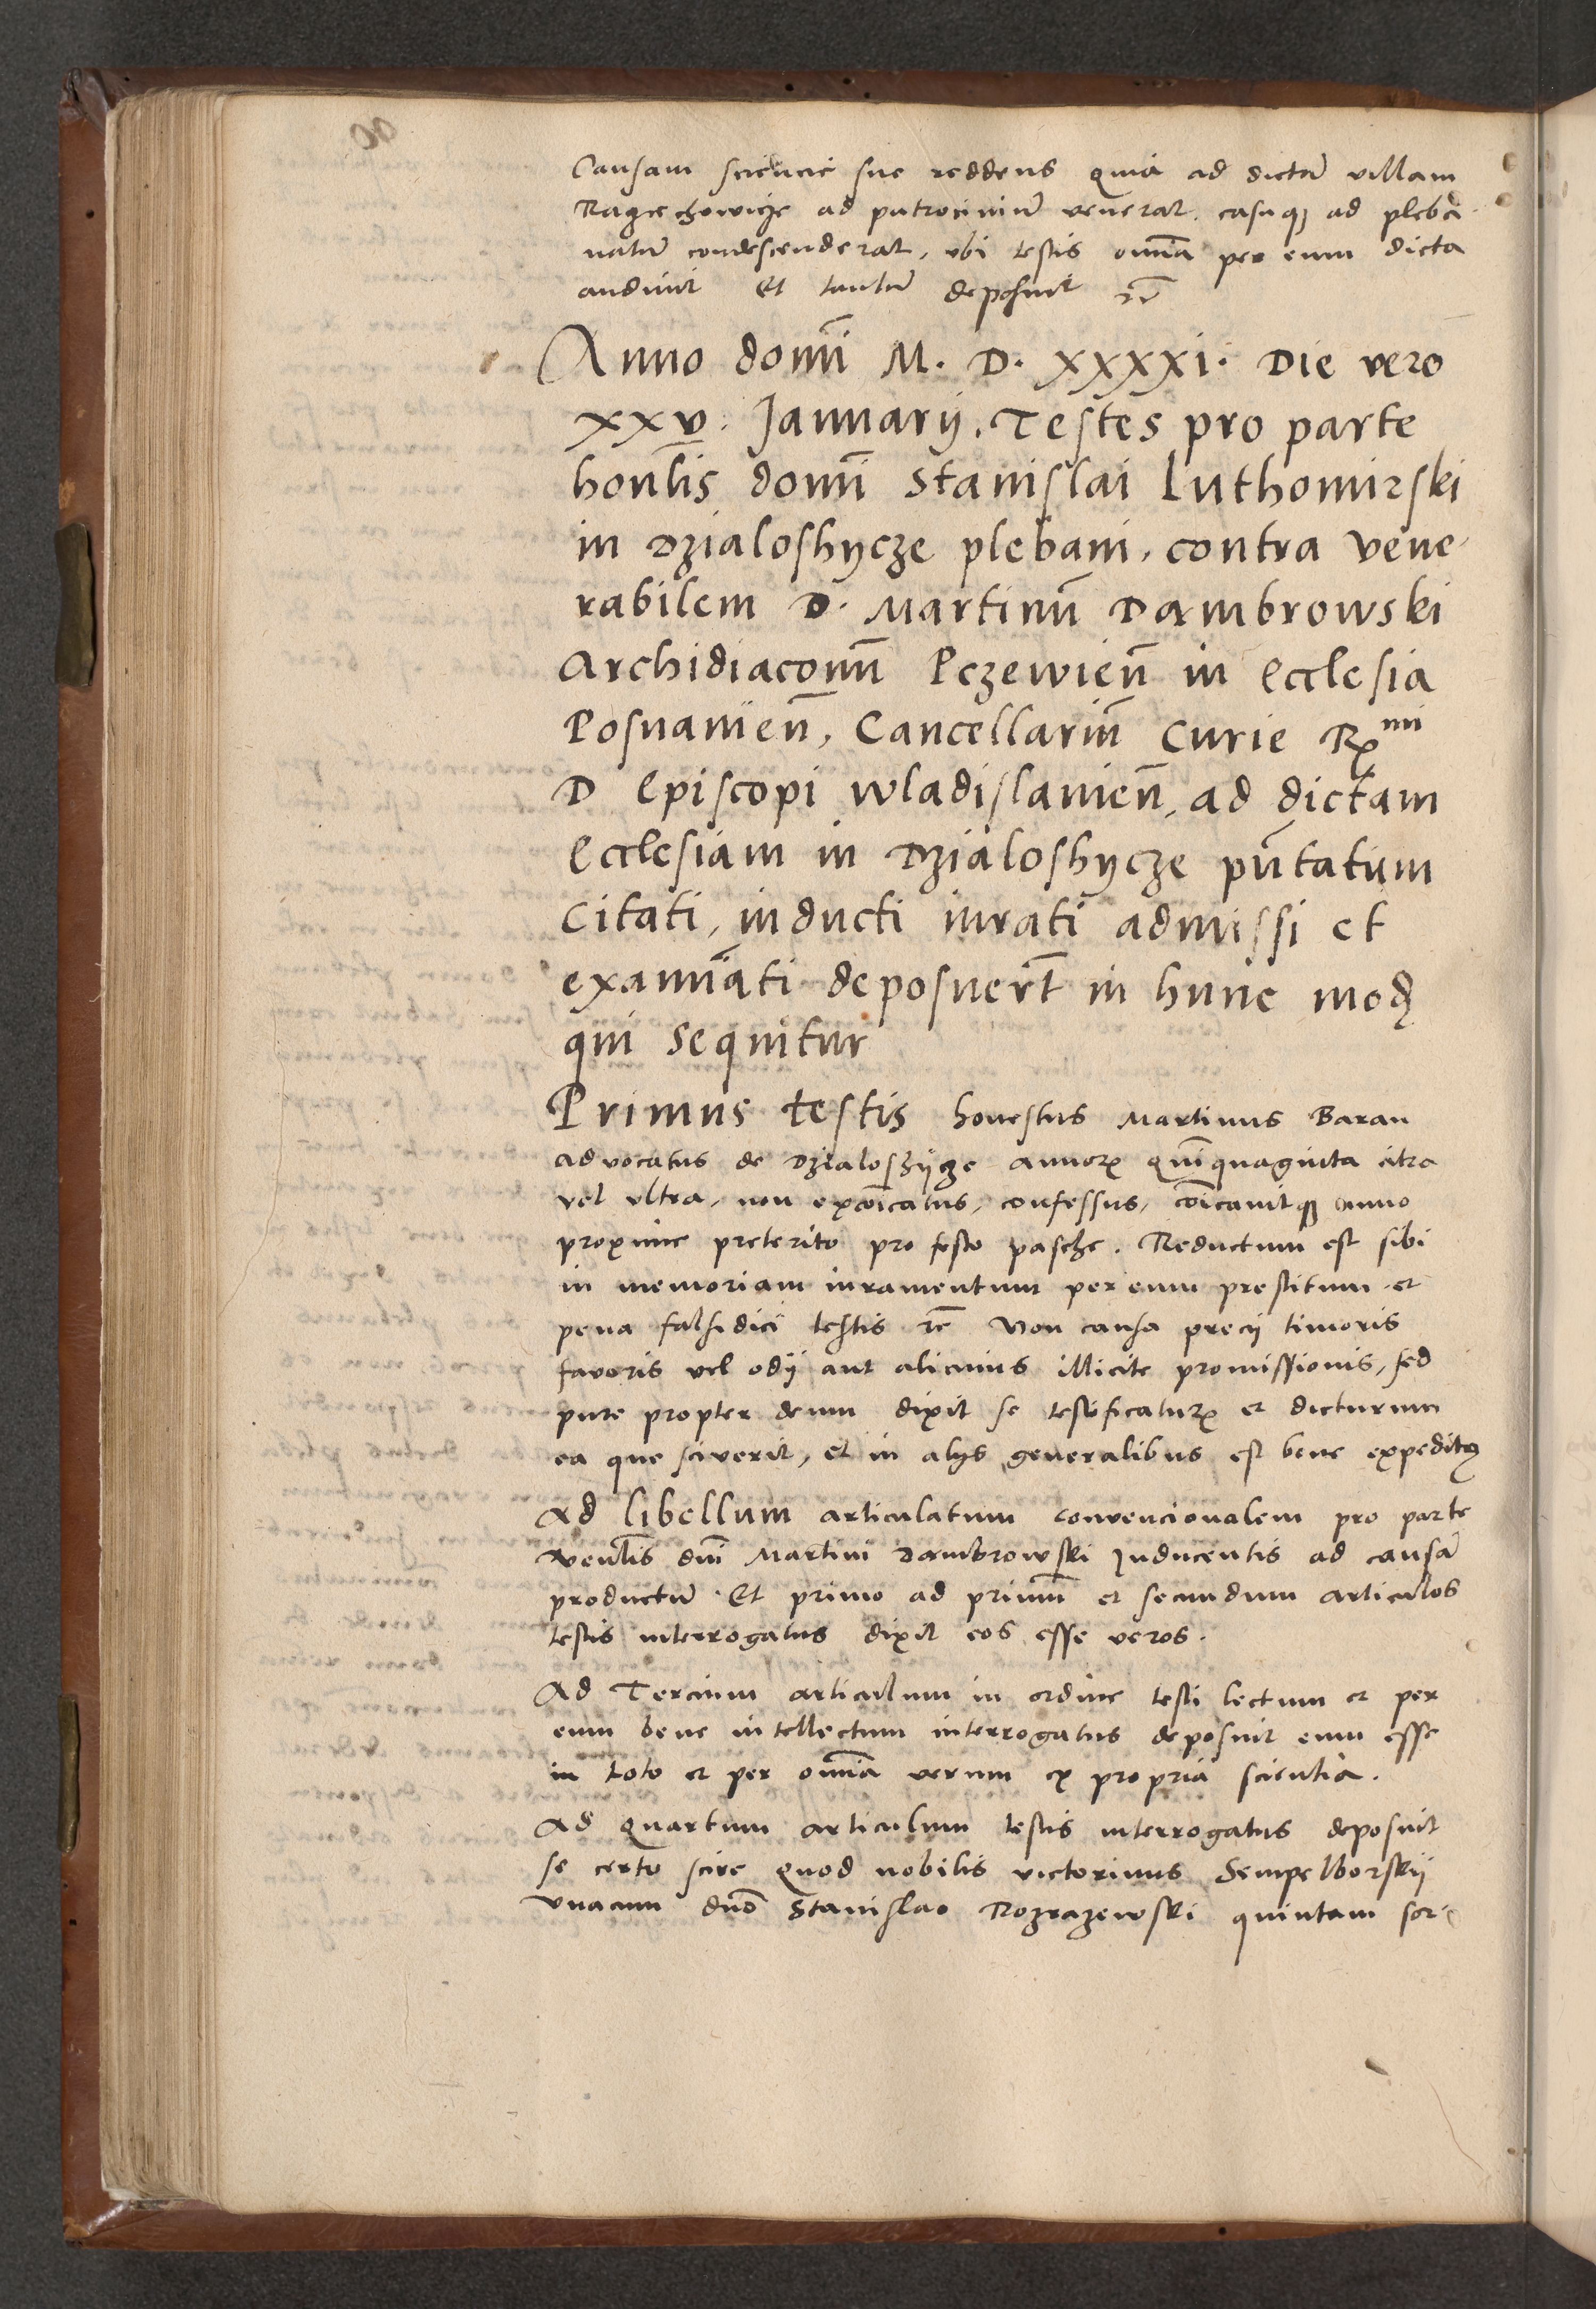 Causam sciencie sue reddens quia ad dictā villam
Ragiechowicze ad patrociniū venerat. casuqȝ ad pleba-
natū condescenderat, vbi testis om̄ia per eum dicta
audiuit Et tantū deposuit rc̄
Anno domī M. D. XXXXI. Die vero
XXV. Januarij. Testes pro parte
honl̄is domī Stanislai Luthomirski
in Dzialoshycze plebani, contra vene-
rabilem D. Martinū Dambrowski
Archidiaconū Pczewien̄ in Ecclesia
Posnanien̄, Cancellariū Curie Rᵐⁱ
D Episcopi Wladislauien̄, ad dictam
Ecclesiam in Dzialoshycze pn̄tatum
Citati, inducti iurati admissi et
examīati deposuerт̄ in hunc modȝ
qui sequitur
Primus testis honestus Martinus Baran
aduocatus de Dzialoshycze annorꝝ quīquaginta citra
vel vltra, non excōicatus, confessus, cōicauitqȝ anno
proxime preterito pro festo pasche. Reductum est sibi
in memoriam iuramentum per eum prestitum et
pena falsidici testis rc̄ Non causa precij timoris
fauoris vel odij aut alicuius illicite promissionis, sed
pure propter deum dixit se testificaturꝝ et dicturum
ea que sciuerit, et in alijs generalibus est bene expeditꝰ
Ad libellum articulatum conuencionalem pro parte
venl̄is dn̄i Martini Dambrowski Inducentis ad causā
productū. Et primo ad primū et secundum articulos
testis interrogatus dixit eos esse veros.
Ad Tercium articulum in ordine testi lectum et per
eum bene intellectum interrogatus deposuit eum esse
in toto et per om̄ia verum ex propria scientia.
Ad Quartum articulum testis interrogatus deposuit
se certo scire Quod nobilis victorinus Sempelborskij
vnacum dn̄o Stanislao Rozrazewski quintam sor-